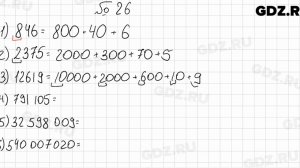 № 26
GDZ.RU
1) 846 = 800 · 40 + 6
2) 2375 = 2000 + 300 + 70 + 5
3) 12619 = 10000 + 2000 + 600 + 10 + 9
4) 791 105 =
5) 32 598 009 =
6) 540 007 020 =